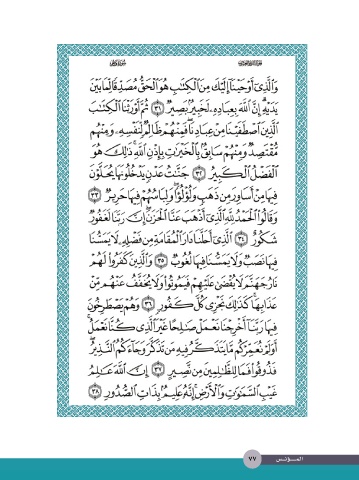 وَالَّذِىٓ أَوْحَيْنَآ إِلَيْكَ مِنَ الْكِتَٰبِ هُوَ الْحَقُّ مُصَدِّقًا لِّمَا بَيْنَ
يَدَيْهِ إِنَّ اللَّهَ بِعِبَادِهِۦ لَخَبِيرٌۢ بَصِيرٌ ٣١ ثُمَّ أَوْرَثْنَا الْكِتَٰبَ
الَّذِينَ اصْطَفَيْنَا مِنْ عِبَادِنَا فَمِنْهُمْ ظَالِمٌ لِّنَفْسِهِۦ وَمِنْهُم
مُّقْتَصِدٌ وَمِنْهُمْ سَابِقٌۢ بِالْخَيْرَٰتِ بِإِذْنِ اللَّهِ ذَٰلِكَ هُوَ
الْفَضْلُ الْكَبِيرُ ٣٢ جَنَّٰتُ عَدْنٍ يَدْخُلُونَهَا يُحَلَّوْنَ
فِيهَا مِنْ أَسَاوِرَ مِن ذَهَبٍ وَلُؤْلُؤًا وَلِبَاسُهُمْ فِيهَا حَرِيرٌ ٣٣
وَقَالُوا الْحَمْدُ لِلَّهِ الَّذِىٓ أَذْهَبَ عَنَّا الْحَزَنَ إِنَّ رَبَّنَا لَغَفُورٌ
شَكُورٌ ٣٤ الَّذِىٓ أَحَلَّنَا دَارَ الْمُقَامَةِ مِن فَضْلِهِۦ لَا يَمَسُّنَا
فِيهَا نَصَبٌ وَلَا يَمَسُّنَا فِيهَا لُغُوبٌ ٣٥ وَالَّذِينَ كَفَرُوا لَهُمْ
نَارُ جَهَنَّمَ لَا يُقْضَىٰ عَلَيْهِمْ فَيَمُوتُوا وَلَا يُخَفَّفُ عَنْهُم مِّنْ
عَذَابِهَا كَذَٰلِكَ نَجْزِى كُلَّ كَفُورٍ ٣٦ وَهُمْ يَصْطَرِخُونَ
فِيهَا رَبَّنَآ أَخْرِجْنَا نَعْمَلْ صَٰلِحًا غَيْرَ الَّذِى كُنَّا نَعْمَلُ
أَوَلَمْ نُعَمِّرْكُم مَّا يَتَذَكَّرُ فِيهِ مَن تَذَكَّرَ وَجَآءَكُمُ النَّذِيرُ
فَذُوقُوا فَمَا لِلظَّٰلِمِينَ مِن نَّصِيرٍ ٣٧ إِنَّ اللَّهَ عَٰلِمُ
غَيْبِ السَّمَٰوَٰتِ وَالْأَرْضِ إِنَّهُۥ عَلِيمٌۢ بِذَاتِ الصُّدُورِ ٣٨
٧٧